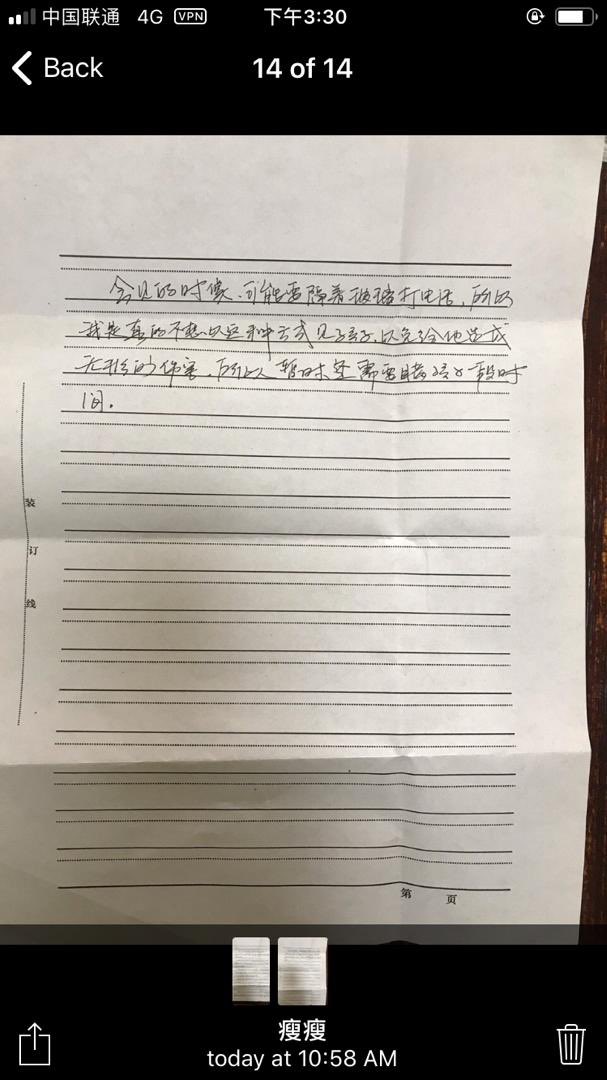 中国联通 4G VPN 下午3:30
Back 14 of 14
会见的时候、可能需隔着玻璃打电话,所以
我是真的不想以这种方式见孩子,以免给他造成
无形的伤害,所以暂时还需要瞒孩子一段时
间。
装
订
线
第 页
瘦瘦
today at 10:58 AM